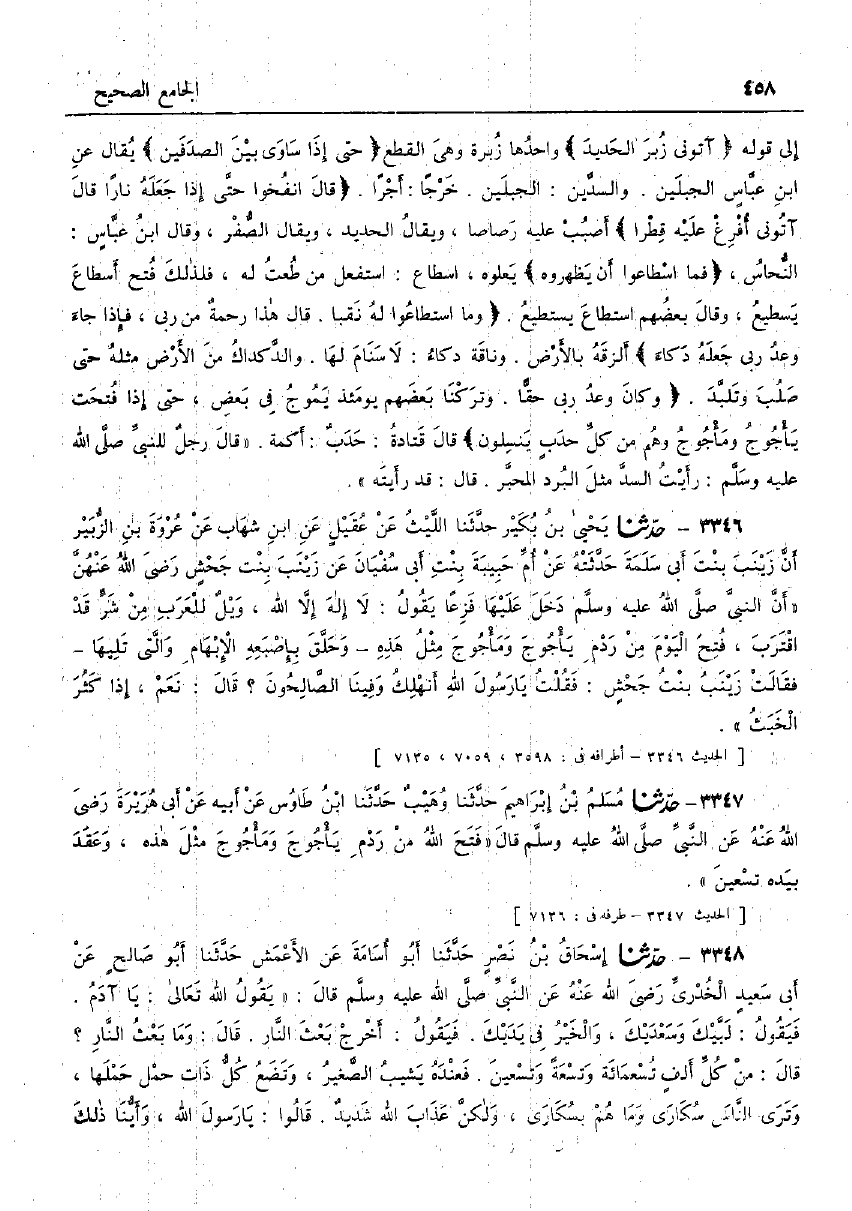 ٤٥٨
الجامع الصحيح
إلى قوله ﴿ آتونى زُبرَ الحَديدَ ﴾ واحدُها زُبرة وهىَ القطع ﴿ حتى إذَا سَاوَى بيْنَ الصدَفَين ﴾ يُقال عن
ابنِ عبَّاس الجبلَين . والسدَّين : الجبلَين . خَرْجًا : أَجْرًا . ﴿ قالَ انفُخوا حتَّى إذا جَعَلَهُ نارًا قالَ
آتُونى أُفْرِغْ علَيْه قِطْرا ﴾ أَصبُبْ عليه رَصاصا ، ويقالُ الحديد ، ويقال الصُّفْر ، وقال ابنُ عبَّاس :
النُّحاسُ ، ﴿ فما اسْطاعوا أَن يَظهروه ﴾ يَعلوه ، اسطاع : استفعل من طُعتُ له ، فلذٰلكَ فُتح أَسطاعَ
يَسطيعُ ، وقالَ بعضُهم استطاعَ يستطيعُ . ﴿ وما استطاعُوا لهُ نَقبا . قال هٰذا رحمةٌ من ربى ، فإذا جاءَ
وعدُ ربى جَعَلَهُ دَكاءَ ﴾ أَلزقَهُ بالأَرْض . وناقَة دكاءُ : لَا سَنَامَ لهَا . والدَّكداكُ منَ الأَرْض مثلهُ حتى
صَلُبَ وتَلبَّدَ . ﴿ وكانَ وعدُ ربى حقًّا . وتركْنَا بَعضَهم يومَئذ يَمُوج فى بَعض ، حتى إذا فُتحَت
يَأْجُوجُ ومَأْجُوجُ وهُم من كلِّ حدَبٍ يَنسِلون ﴾ قالَ قَتادةُ : حَدَبٌ : أكمة . « قالَ رجلٌ للنبىِّ صلَّى الله
عليه وسَلَّم : رأَيْتُ السدَّ مثلَ البُرد المحبَّر . قال : قد رأَيتَه » .
٣٣٤٦ – حدّثنا يَحْيىٰ بنُ بُكَيْر حدَّثَنَا اللَّيْثُ عَنْ عُقَيْلٍ عَنِ ابنِ شهَاب عَنْ عُرْوَةَ بنِ الزُّبَيْر
أَنَّ زَيْنَبَ بنْتَ أَبى سَلَمَةَ حَدَّثَتْهُ عَنْ أُمِّ حَبِيبَةَ بِنْتِ أَبى سُفْيَانَ عَن زَيْنَبَ بنْت جَحْشٍ رَضىَ اللهُ عَنْهُنَّ
« أَنَّ النبىَّ صلَّى اللهُ عليه وسلَّم دَخَلَ عَلَيْهَا فَزِعًا يَقُولُ : لَا إلٰهَ إلَّا الله ، وَيْلٌ للْعَرَبِ مِنْ شَرٍّ قَدْ
اقْتَرَبَ ، فُتحَ الْيَوْمَ مِنْ رَدْمِ يَأْجُوجَ وَمَأْجُوجَ مِثْلُ هَذِهِ – وَحَلَّقَ بِإصْبَعِهِ الْإبْهَامِ وَالَّتى تَلِيهَا –
فقَالَتْ زَيْنَبُ بنْتُ جَحْشٍ : فَقُلْتُ يَارَسُولَ اللهِ أَنَهْلِكُ وَفِينَا الصَّالِحُونَ ؟ قَالَ : نَعَمْ ، إذَا كَثُرَ
الْخَبَثُ » .
[ الحديث ٣٣٤٦ – أطرافه فى : ٣٥٩٨ ، ٧٠٥٩ ، ٧١٣٥ ]
٣٣٤٧– حدّثنا مُسْلمُ بْنُ إبْرَاهيمَ حَدَّثَنَا وُهَيْبٌ حَدَّثَنَا ابْنُ طَاوُس عَنْ أَبيه عَنْ أَبى هُرَيْرَةَ رَضىَ
اللهُ عَنْهُ عَن النَّبىِّ صلَّى اللهُ عليه وسلَّم قالَ « فَتَحَ اللهُ منْ رَدْمِ يَأْجُوجَ وَمَأْجُوجَ مثْلَ هٰذه ، وَعَقَدَ
بيَده تسْعينَ » .
[ الحديث ٣٣٤٧ – طرفه فى : ٧١٣٦ ]
٣٣٤٨ – حدّثنا إسْحَاقُ بْنُ نَصْرٍ حَدَّثَنَا أَبُو أُسَامَةَ عَن الأَعْمَش حَدَّثَنَا أَبُو صَالحٍ عَنْ
أَبى سَعيدٍ الْخُدْرىِّ رَضىَ الله عَنْهُ عَن النَّبىِّ صلَّى الله عليه وسلَّم قالَ : « يَقُولُ الله تَعَالىٰ : يَا آدَمُ .
فَيَقُولُ : لَبَّيْكَ وَسَعْدَيْكَ ، وَالْخَيْرُ فى يَدَيْكَ . فَيَقُولُ : أَخْرجْ بَعْثَ النَّار . قَالَ : وَمَا بَعْثُ النَّارِ ؟
قالَ : منْ كُلِّ أَلْفٍ تُسْعمَائَة وَتسْعَةً وَتسْعينَ . فَعنْدَهُ يَشيبُ الصَّغيرُ ، وَتَضَعُ كُلُّ ذَات حمْل حَمْلَهَا ،
وَتَرَى النَّاسَ سُكَارَى وَمَا هُمْ بسُكَارَى ، وَلٰكنَّ عَذَابَ الله شَديدٌ . قَالُوا : يَارَسولَ الله ، وَأَيُّنَا ذٰلكَ